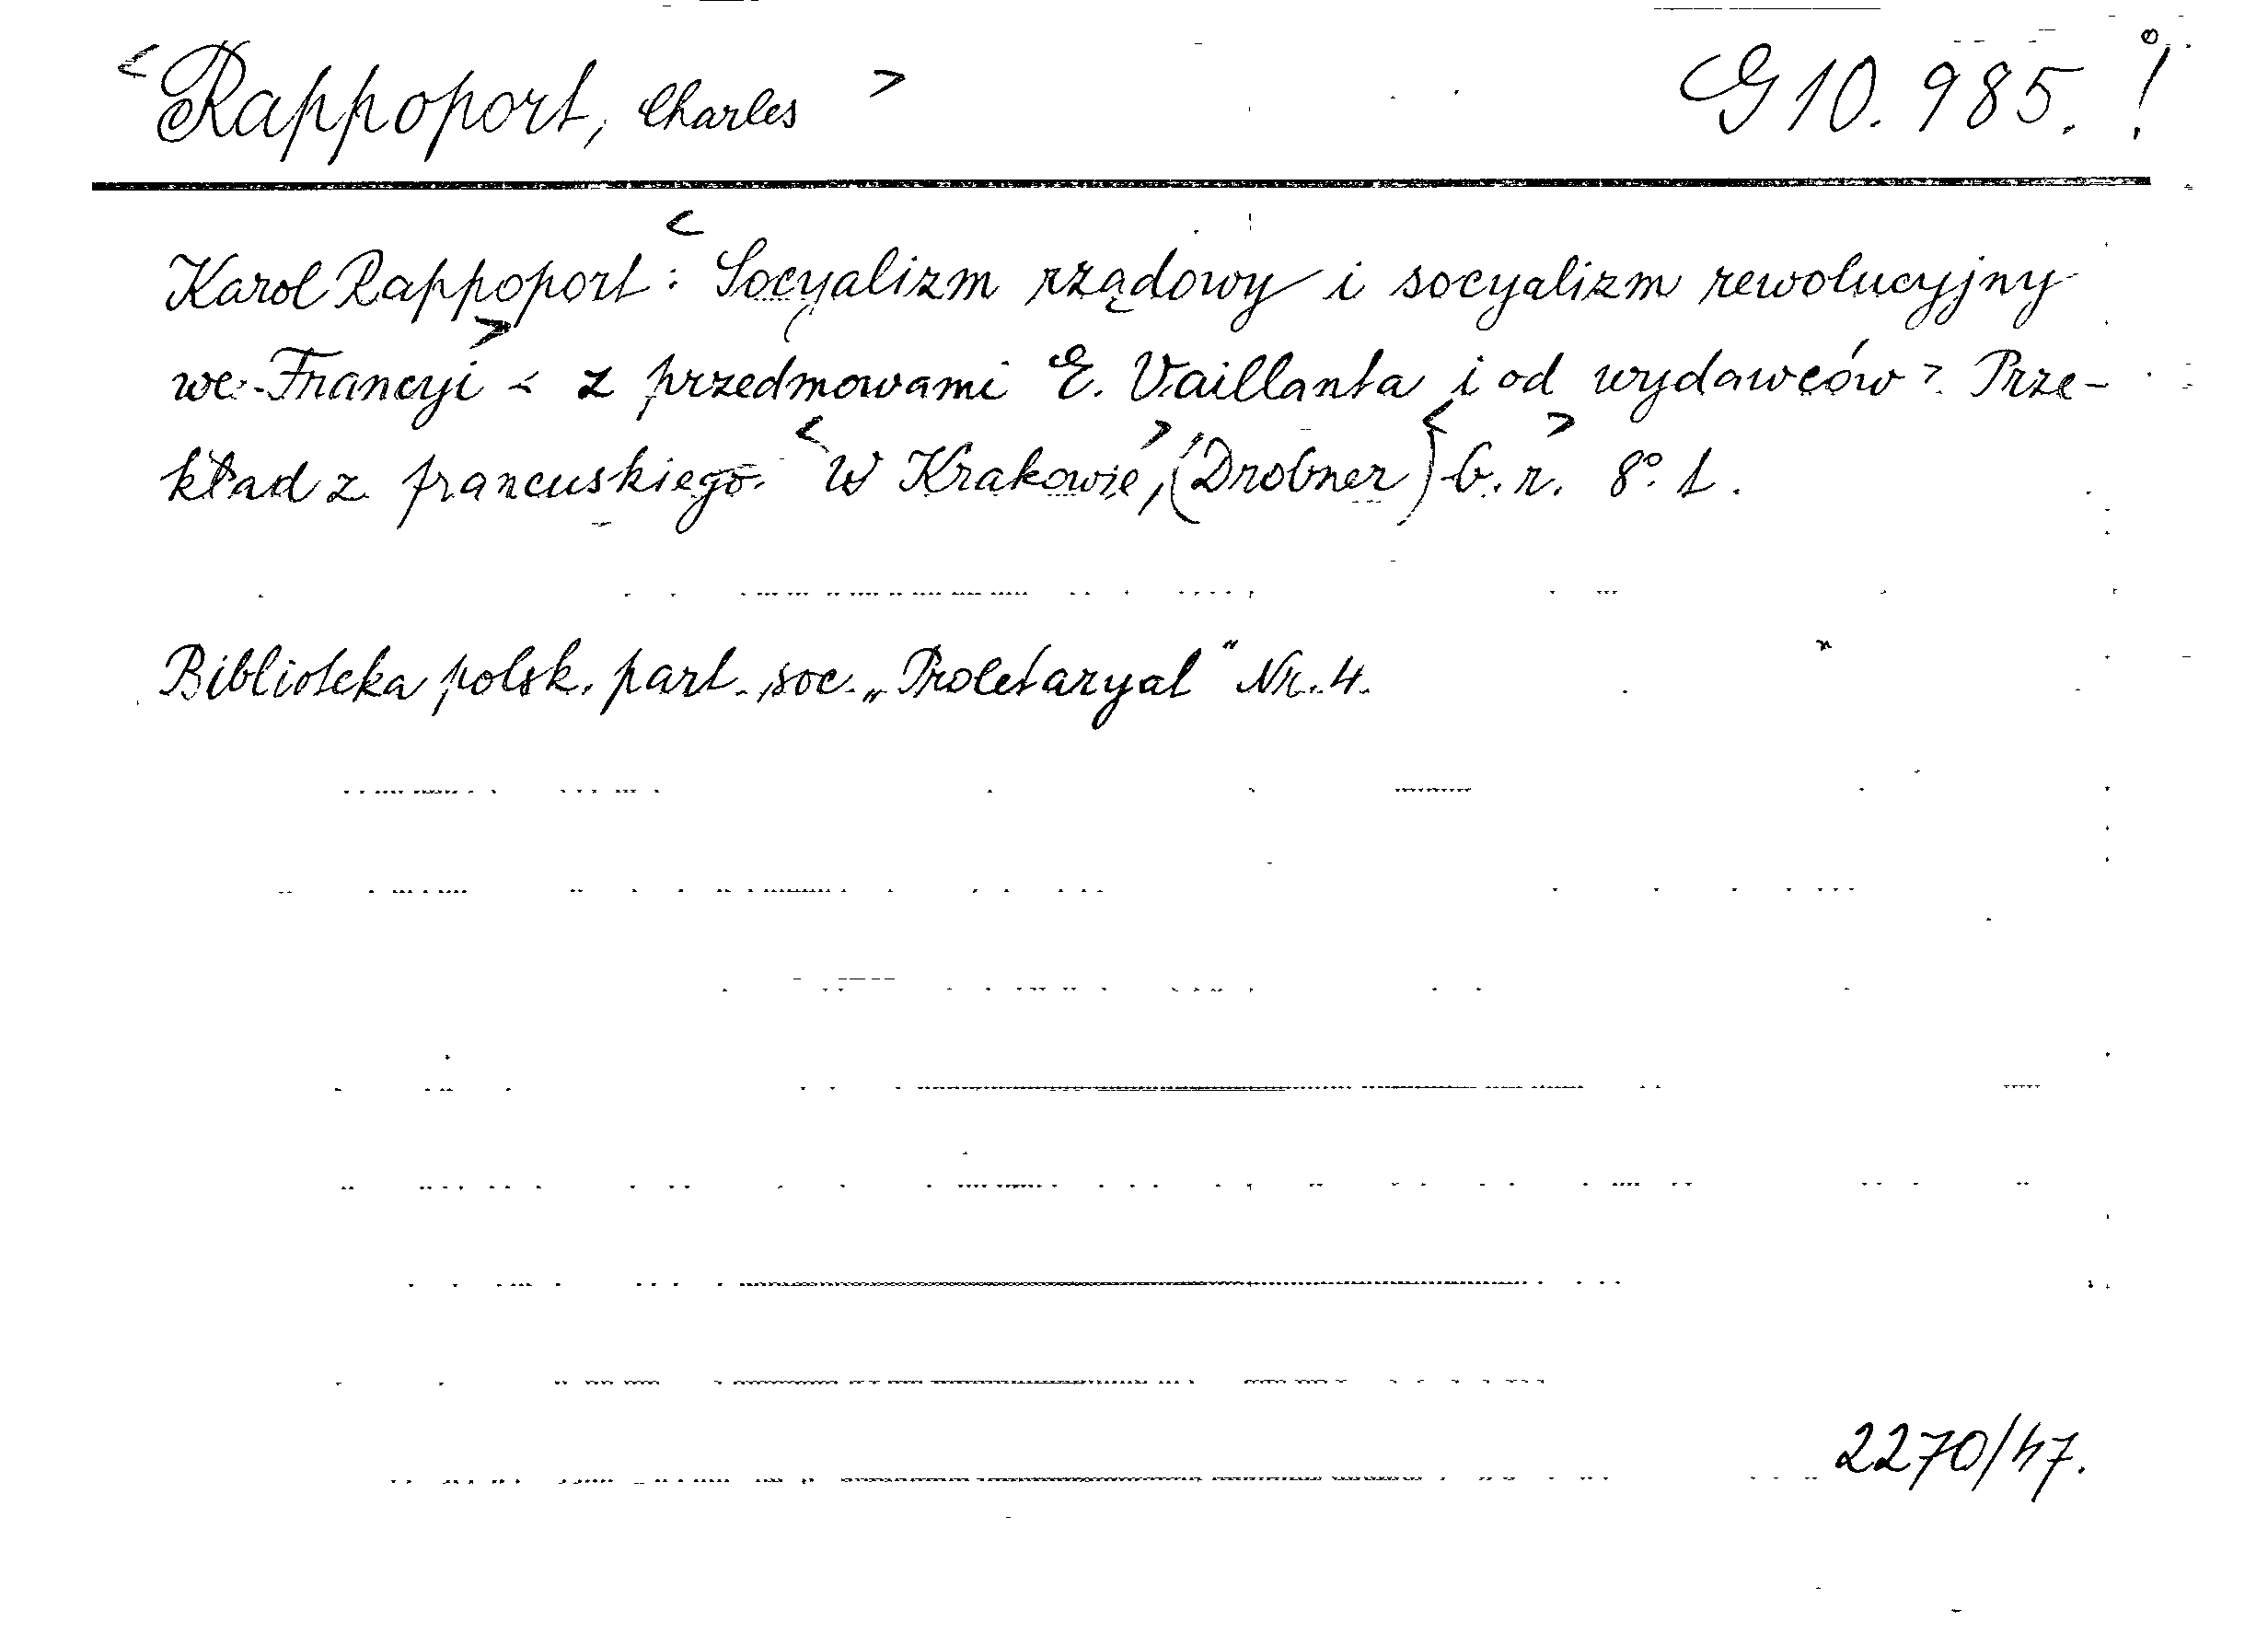 <Rappoport, Charles> G 10.985.!
Karol Rappoport: <Socyalizm rządowy i socyalizm rewolucyjny
we Francyi> < z przedmowami E. Vaillanta i od wydawców>. Prze-
kład z francuskiego. <W Krakowie>, (Drobner) <b.r.> 8° 1.
Biblioteka polsk. part. soc. „Proletaryat" Nr. 4.
2270/47.